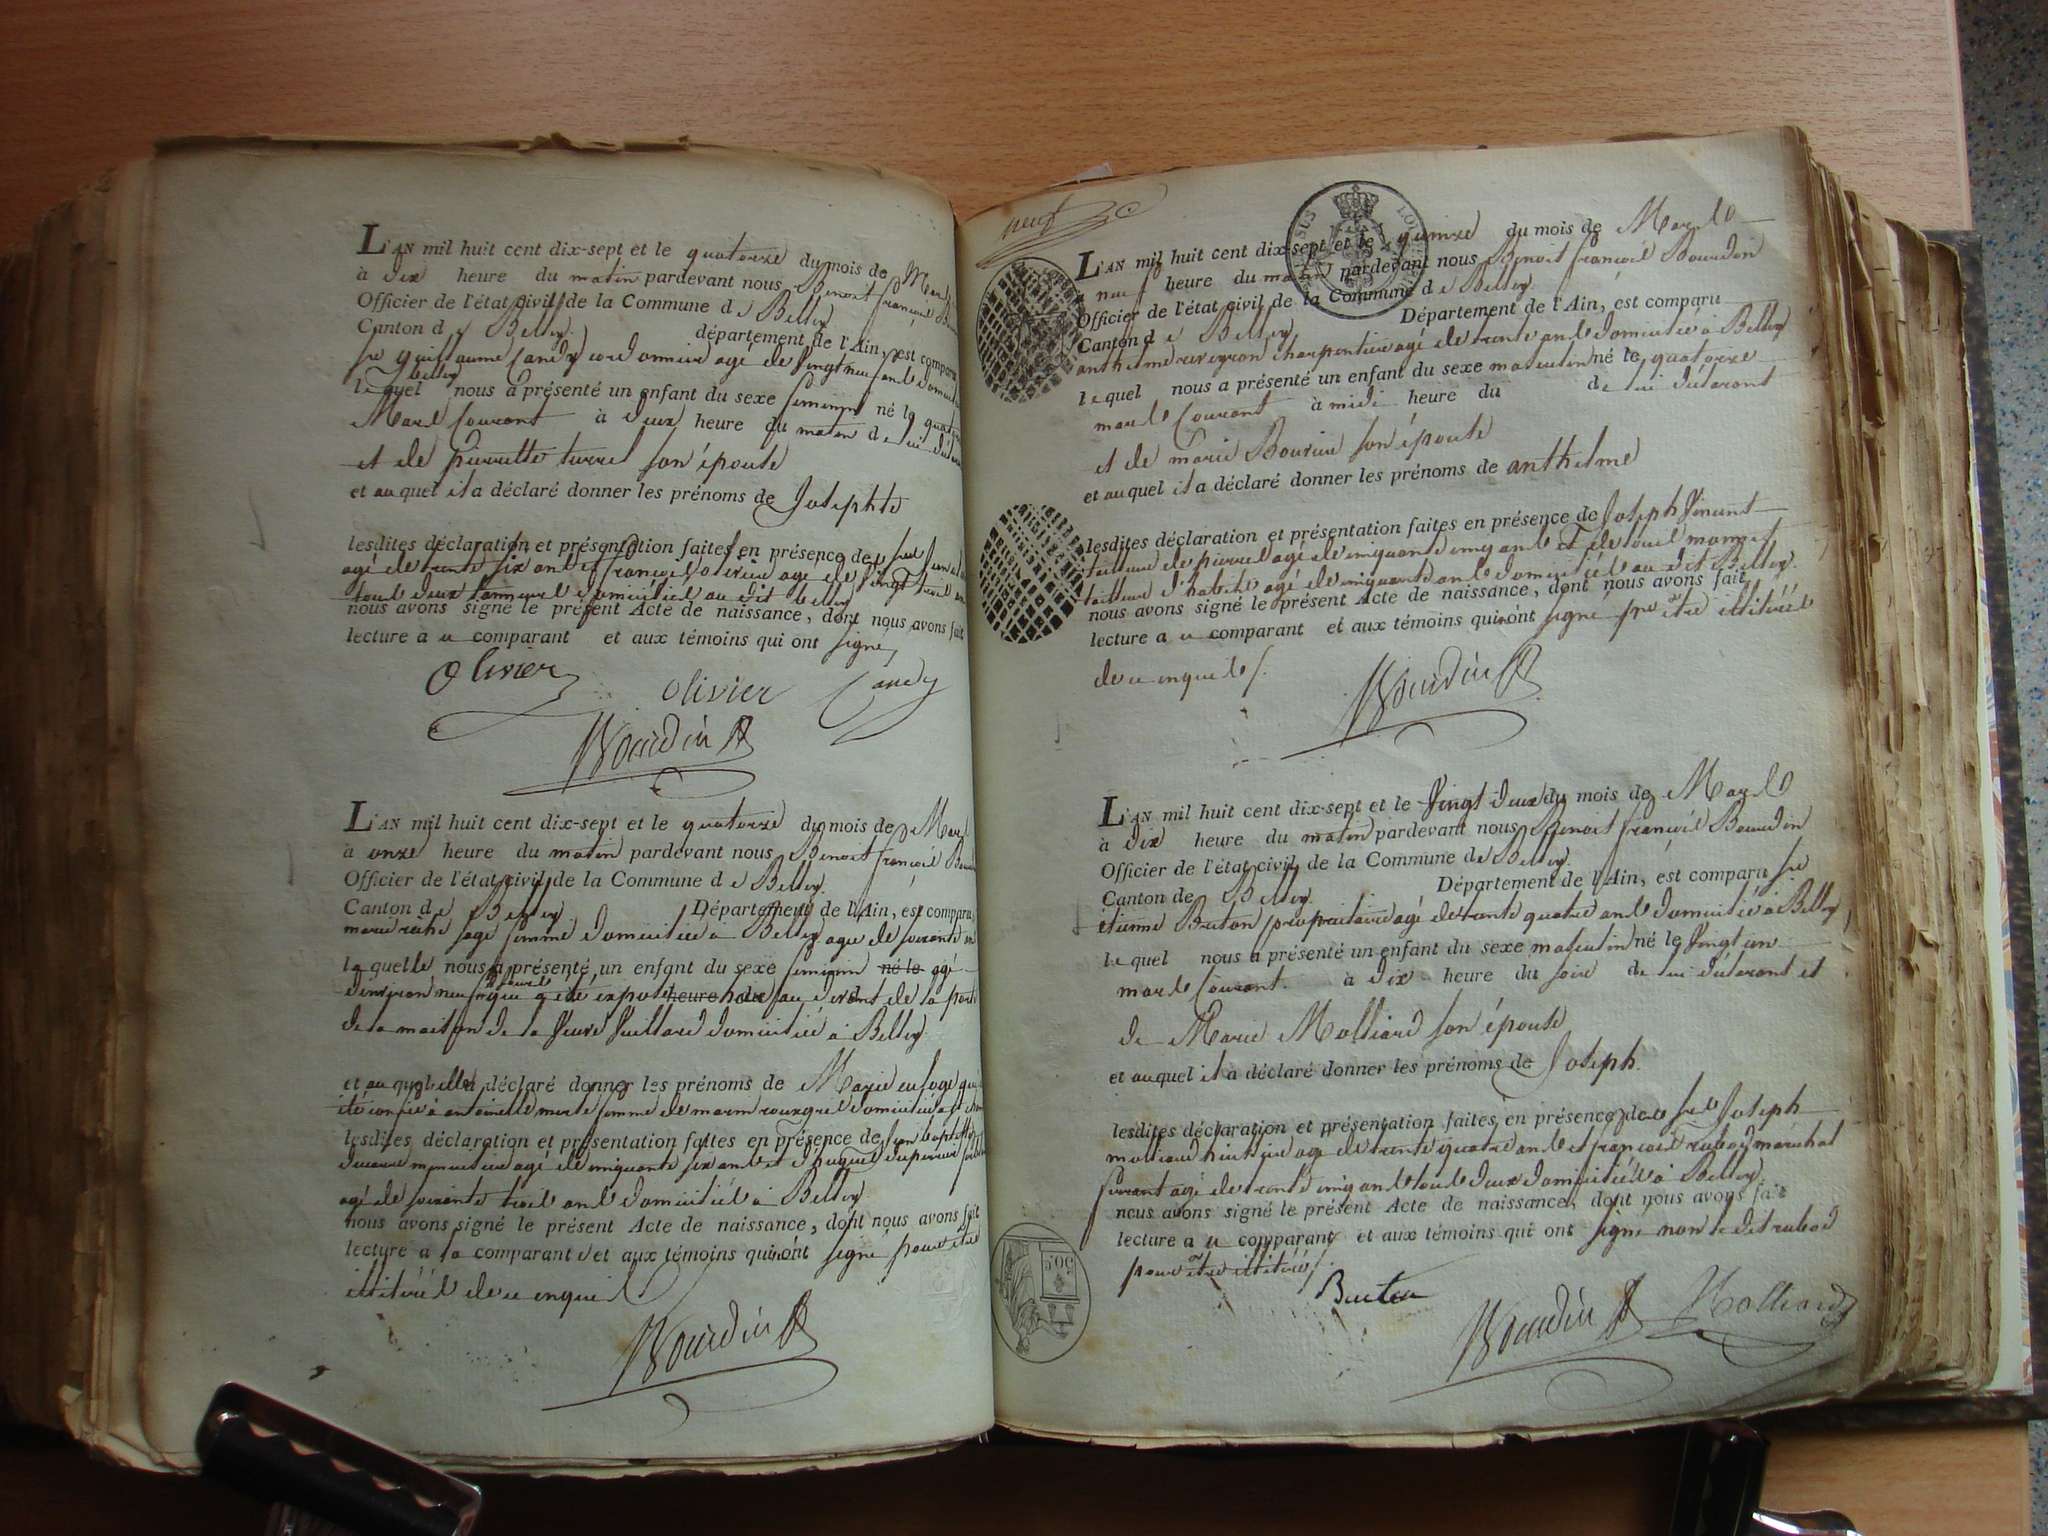 L'AN mil huit cent dix-sept et le quatorze du mois de Mars
à dix heure du matin pardevant nous Benoit françois
Officier de l'état civil de la Commune d e Belley
Canton d e Belley. département de l'Ain, est comparu
sr guillaume Candy cordonnier agé de vingt neuf ans domicilié
belley
le quel nous a présenté un enfant du sexe feminin né le quatorze
Mars Courant à deux heure du matin de lui
et de pierrette turrel son épouse
et au quel il a déclaré donner les prénoms de Josephte
lesdites déclaration et présentation faites en présence de srs
agé de trente six ans et françois olivier agé de vingt trois ans
tous deux domiciliés au dit belley
nous avons signé le présent Acte de naissance, dont nous avons fait
lecture a u comparant et aux témoins qui ont signé,
Olivier olivier Candy
Bourdin
L'AN mil huit cent dix-sept et le quatorze du mois de Mars
à onze heure du matin pardevant nous Benoit françois
Officier de l'état civil de la Commune d e Belley.
Canton d e Belley. Département de l'Ain, est comparu
marie sage femme domiciliée à Belley agée de soixante
la quelle nous a présenté un enfant du sexe feminin né le agé
d'environ neuf qui a été exposé heure du au devant de la porte
de la maison de la veuve Vuillard domiciliée à Belley
et au quel elle a déclaré donner les prénoms de Marie
été confié à antoinette femme de domicilié
lesdites déclaration et présentation faites en présence de jean baptiste
agé de cinquante six ans et
agé de soixante trois ans domiciliés à Belley
nous avons signé le présent Acte de naissance, dont nous avons fait
lecture a la comparante et aux témoins qui n'ont signé pour être
illitérés de ce enquis
Bourdin
neuf
L'AN mil huit cent dix-sept et le quinze du mois de Mars
à neuf heure du matin pardevant nous Benoit françois Bourdin
Officier de l'état civil de la Commune d e Belley
Canton d e Belley Département de l'Ain, est comparu
anthelme reveyron charpentier agé de trente ans domicilié à Belley
le quel nous a présenté un enfant du sexe masculin né le quatorze
mars Courant à midi heure du de lui déclarant
et de marie Bouvier son épouse
et au quel il a déclaré donner les prénoms de anthelme
lesdites déclaration et présentation faites en présence de Joseph Vincent
tailleur de pierres agé de cinquante cinq ans et de
tailleur d'habits agé de cinquante ans domiciliés au dit Belley.
nous avons signé le présent Acte de naissance, dont nous avons fait
lecture a u comparant et aux témoins qui n'ont signé pour être illitérés
de ce enquis
Bourdin
L'AN mil huit cent dix-sept et le vingt deux du mois de Mars
à dix heure du matin pardevant nous Benoit françois Bourdin
Officier de l'état civil de la Commune d e Belley.
Canton de Belley. Département de l'Ain, est comparu sr
étienne Breton propriétaire agé de trente quatre ans domicilié à Belley
le quel nous a présenté un enfant du sexe masculin né le vingt un
mars Courant. à dix heure du soir de lui déclarant et
de Marie Molliard son épouse
et au quel il a déclaré donner les prénoms de Joseph.
lesdites déclaration et présentation faites en présence de srs Joseph
molliard huissier agé de trente quatre ans et françois rubod maréchal
ferrant agé de trente cinq ans tous deux domiciliés à Belley
nous avons signé le présent Acte de naissance, dont nous avons fait
lecture a u comparant et aux témoins qui ont signé non le dit rubod
pour être illitéré
Bourdin Molliard
50.C